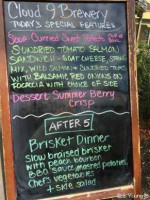 Cloud 9 Brewery
TODAY'S SPECIAL FEATURES
Soup Curried Sweet Potato
SUNDRIED TOMATO SALMON
SANDWICH - GOAT CHEESE, SPRING
MIX, WILD SALMON & SUNDRIED TOMS
WITH BALSAMIC RED ONIONS ON
FOCACCIA WITH CHOICE OF SIDE
Dessert Summer Berry
Crisp
AFTER 5
Brisket Dinner
slow braised brisket
with peach bourbon
BBQ sauce, mashed potatoes
Chefs vegetables
+ side salad